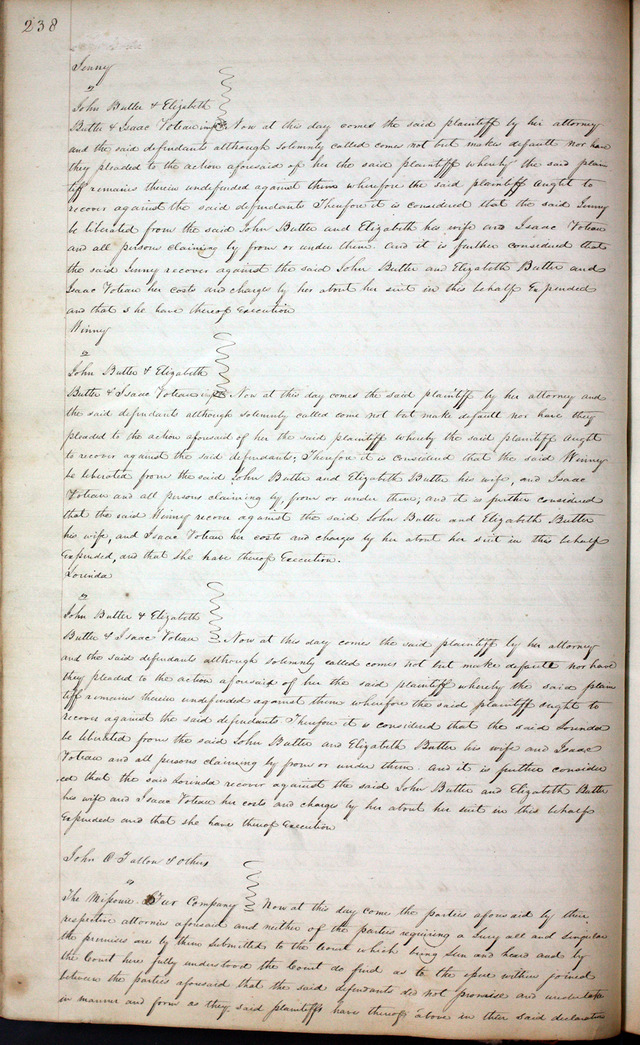 238
Jinny
vs
John Butler & Elizabeth
Butler & Isaac Voteau impd. Now at this day comes the said plaintiff by her attorney
and the said defendants although solemnly called comes not but makes default nor have
they pleaded to the action aforesaid of her the said plaintiff whereby the said plain
tiff remains therein undefended against them wherefore the said plaintiff aught to
recover against the said defendants Therefore it is considered that the said Jinny
be liberated from the said John Butler and Elizabeth his wife and Isaac Voteau
and all persons claiming by from or under them. and it is further considered that
the said Jinny recover against the said John Butler and Elizabeth Butler and
Isaac Voteau her costs and charges by her about her suit in this behalf Expended
and that she have thereof Execution
Winny
vs
John Butler & Elizabeth
Butler & Isaac Voteau impd. Now at this day comes the said plaintiff by her attorney and
the said defendants although solemnly called come not but make default nor have they
pleaded to the action aforesaid of her the said plaintiff whereby the said plaintiff Aught
to recover against the said defendants; Therefore it is considered that the said Winny
be liberated from the said John Butler and Elizabeth Butler his wife, and Isaac
Voteau and all persons claiming by from or under them, and it is further considered
that the said Winny recover against the said John Butler and Elizabeth Butler
his wife, and Isaac Voteau her costs and charges by her about her suit in this behalf
Expended, and that she have thereof Execution.
Lorinda
vs
John Butler & Elizabeth
Butler & Isaac Voteau Now at this day comes the said plaintiff by her attorney
and the said defendants although solemnly called comes not but make default nor have
they pleaded to the action aforesaid of her the said plaintiff whereby the said plain
tiff remains therein undefended against them wherefore the said plaintiff ought to
recover against the said defendants Therefore it is considered that the said Lorinda
be liberated from the said John Butler and Elizabeth Butler his wife and Isaac
Voteau and all persons claiming by from or under them. and it is further consider
ed that the said Lorinda recover against the said John Butler and Elizabeth Butler
his wife and Isaac Voteau her costs and charges by her about her suit in this behalf
Expended and that she have thereof Execution
John O Fallon & others
vs
The Missouri Fur Company Now at this day come the parties aforesaid by their
respective attornies aforesaid and neither of the parties requiring a Jury all and singular
the premises are by them submitted to the Court which being seen and heard and by
the Court here fully understood the Court do find as to the issue within joined
between the parties aforesaid that the said defendants did not promise and undertake
in manner and form as they said plaintiffs have thereof above in their said declaration